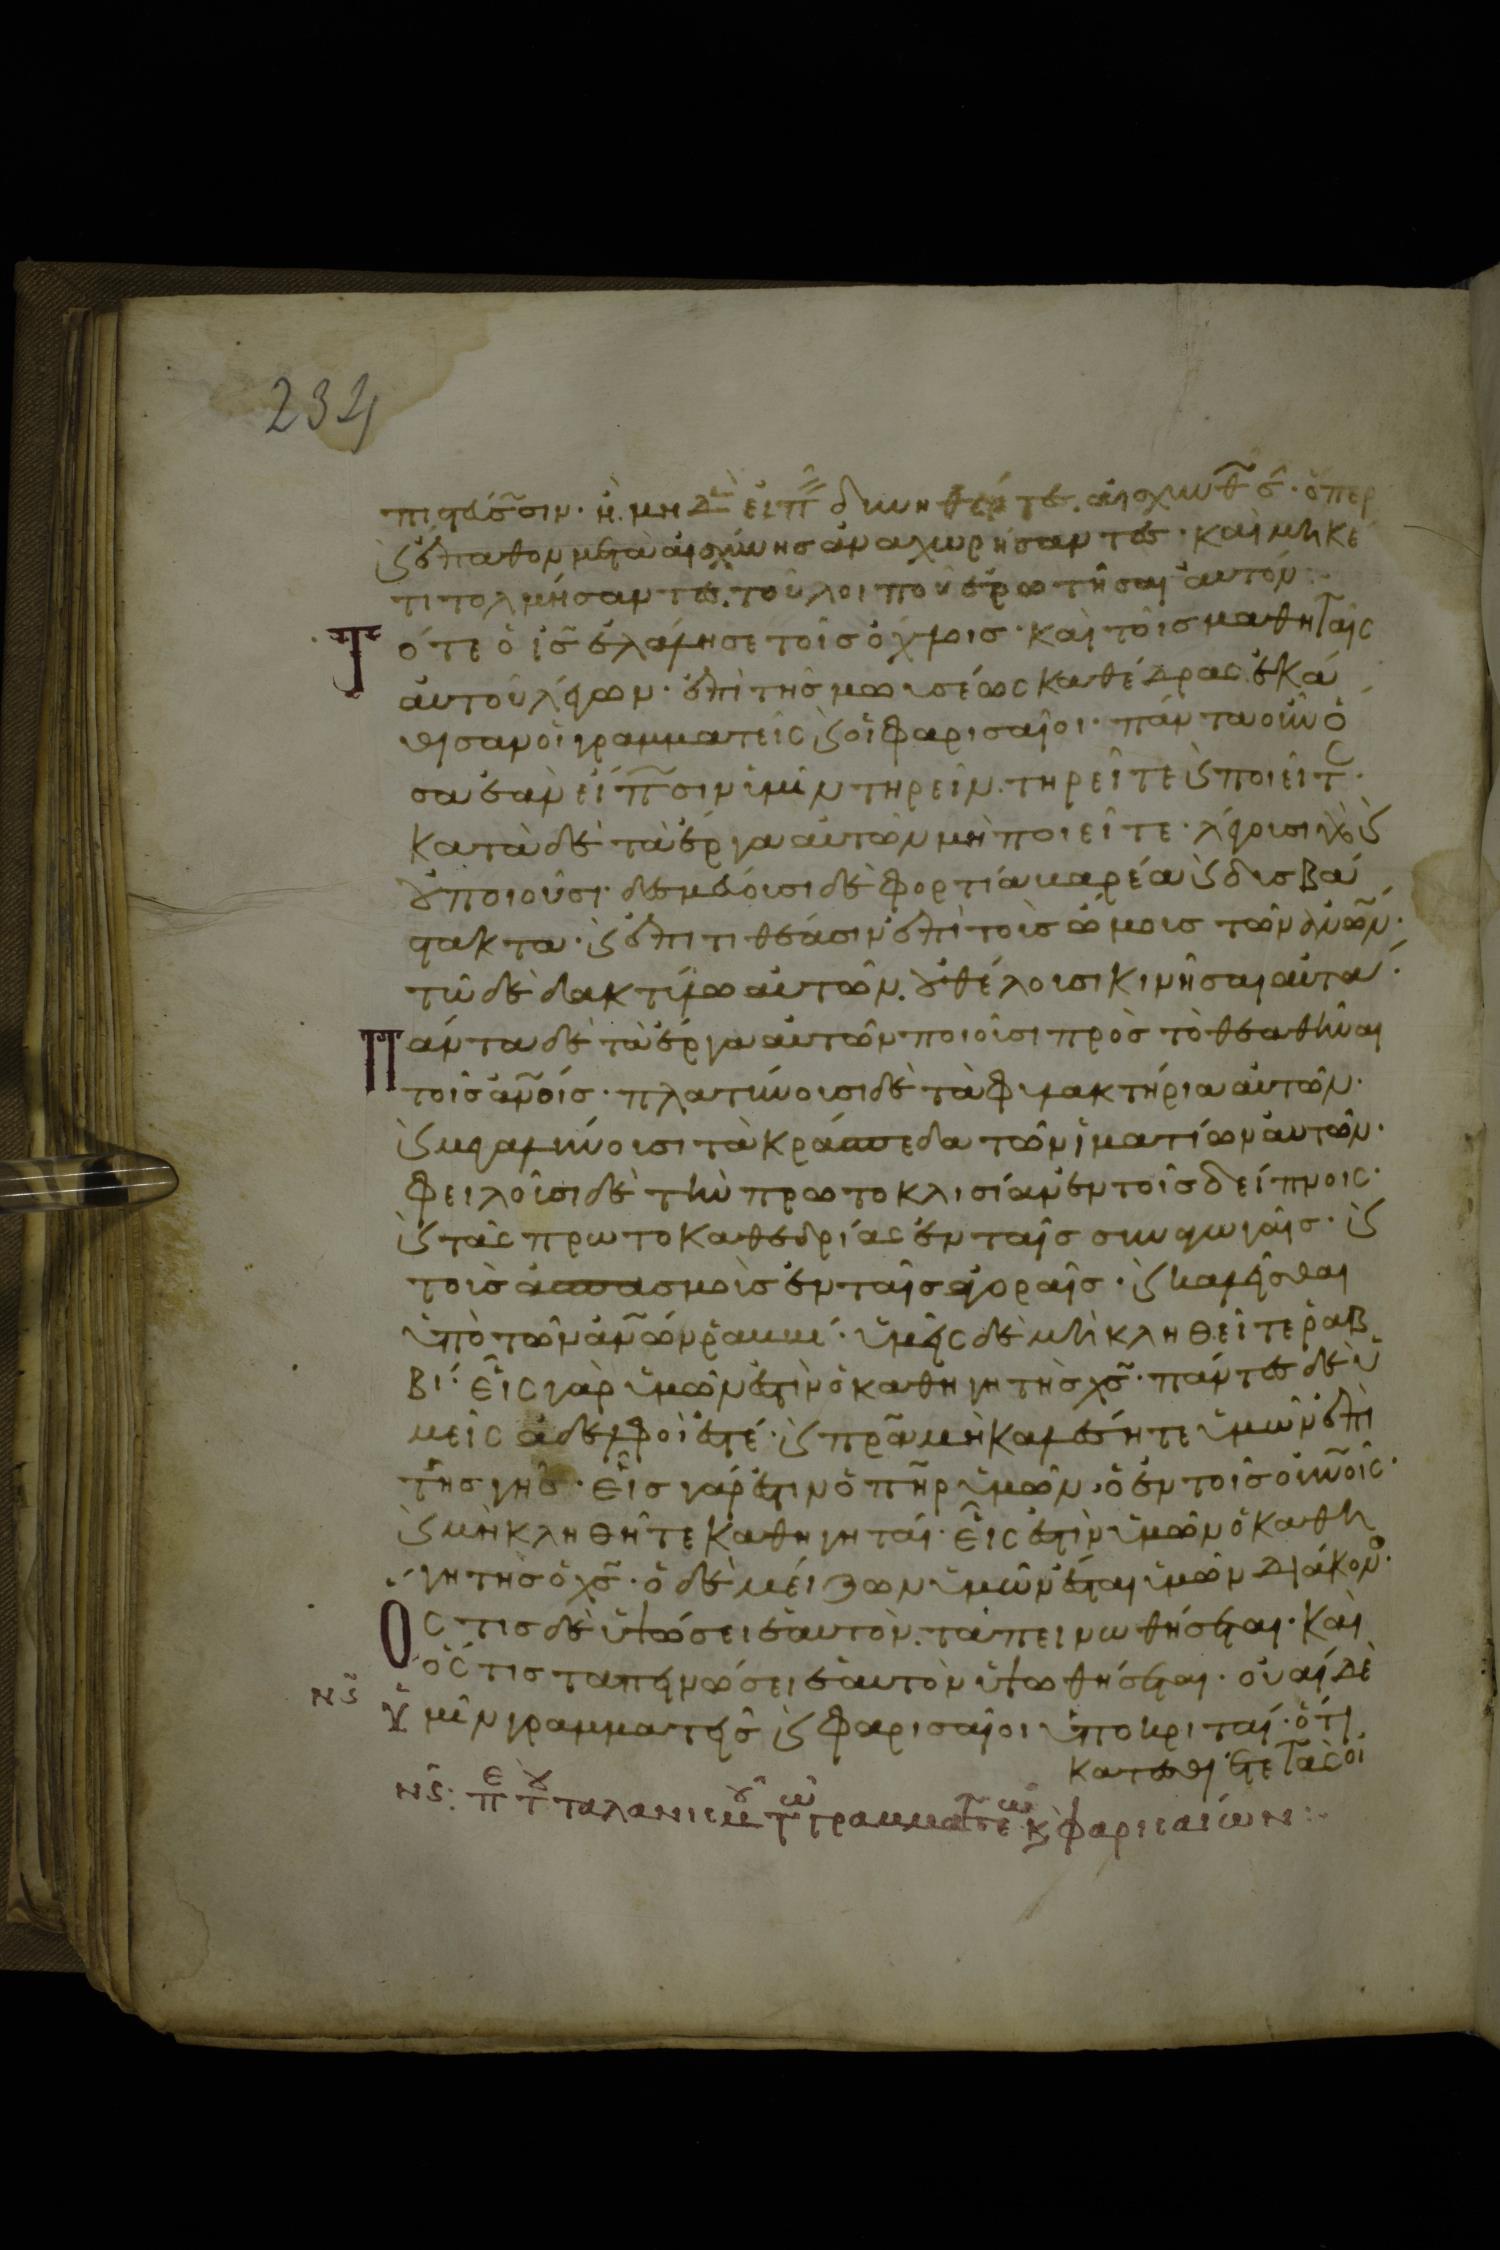 234
πιστεύσωσιν· ἢ μηδὲν εἰπεῖν δυνηθέντες, αἰσχυνθῶσιν· ὅπερ
ϗ ἔπαθον μετὰ αἰσχύνης ἀναχωρήσαντες· καὶ μηκέ
τι τολμήσαντες τοῦ λοιποῦ ἐρωτῆσαι αὐτόν:
Τότε ὁ ις ἐλάλησε τοῖς ὄχλοις· καὶ τοῖς μαθηταῖς
αὐτοῦ λέγων· ἐπὶ τῆς μωυσέως καθέδρας ἐκά
θισαν οἱ γραμματεῖς ϗ οἱ φαρισαῖοι· πάντα οὖν ὅ
σα ἐὰν εἴπωσιν ὑμῖν τηρεῖν· τηρεῖτε ϗ ποιεῖτε·
κατὰ δὲ τὰ ἔργα αὐτῶν μὴ ποιεῖτε· λέγουσι γὰρ ϗ
οὐ ποιοῦσι· δεσμεύουσι δὲ φορτία βαρέα ϗ δυσβά
στακτα· ϗ ἐπιτιθέασιν ἐπὶ τοὺς ὤμους τῶν ανων·
τῷ δὲ δακτύλω αὐτῶν οὐ θέλουσι κινῆσαι αὐτά·
Πάντα δὲ τὰ ἔργα αὐτῶν ποιοῦσι πρὸς τὸ θεαθῆναι
τοῖς ανοις· πλατύνουσι δὲ τὰ φυλακτήρια αὐτῶν·
ϗ μεγαλύνουσι τὰ κράσπεδα τῶν ἱματίων αὐτῶν·
φιλοῦσι δὲ τὴν πρωτοκλισίαν ἐν τοῖς δείπνοις·
ϗ τὰς πρωτοκαθεδρίας ἐν ταῖς συναγωγαῖς· ϗ
τοὺς ἀσπασμοὺς ἐν ταῖς ἀγοραῖς· ϗ καλεῖσθαι
ὑπὸ τῶν ανων ῥαββί· ὑμεῖς δὲ μὴ κληθεῖτε ῥαβ
βί· εἷς γὰρ ὑμῶν ἐστὶν ὁ καθηγητὴς χς· πάντες δὲ ὑ
μεῖς ἀδελφοί ἐστέ· ϗ πρα μὴ καλέσητε ὑμῶν ἐπὶ
τῆς γῆς· εἷς γάρ ἐστιν ὁ πηρ ὑμῶν· ὁ ἐν τοῖς οὐνοῖς·
ϗ μὴ κληθῆτε καθηγηταί· εἷς ἐστὶν ὑμῶν ὁ καθη
γητὴς ὁ χς· ὁ δὲ μείζων ὑμῶν ἔσται ὑμῶν διάκονος·
Ὅστις δὲ ὑψώσει ἑαυτὸν, ταπεινωθήσεται· καὶ
ὅστις ταπεινώσει ἑαυτὸν ὑψωθήσεται· οὐαὶ δὲ
νς ὑμῖν γραμματεῖς ϗ φαρισαῖοι ὑποκριταί· ὅτι
κατεσθίετε τὰς οἰ
νς: πε του ταλανισμοῦ τῶν γραμματέων ϗ φαρισαίων: